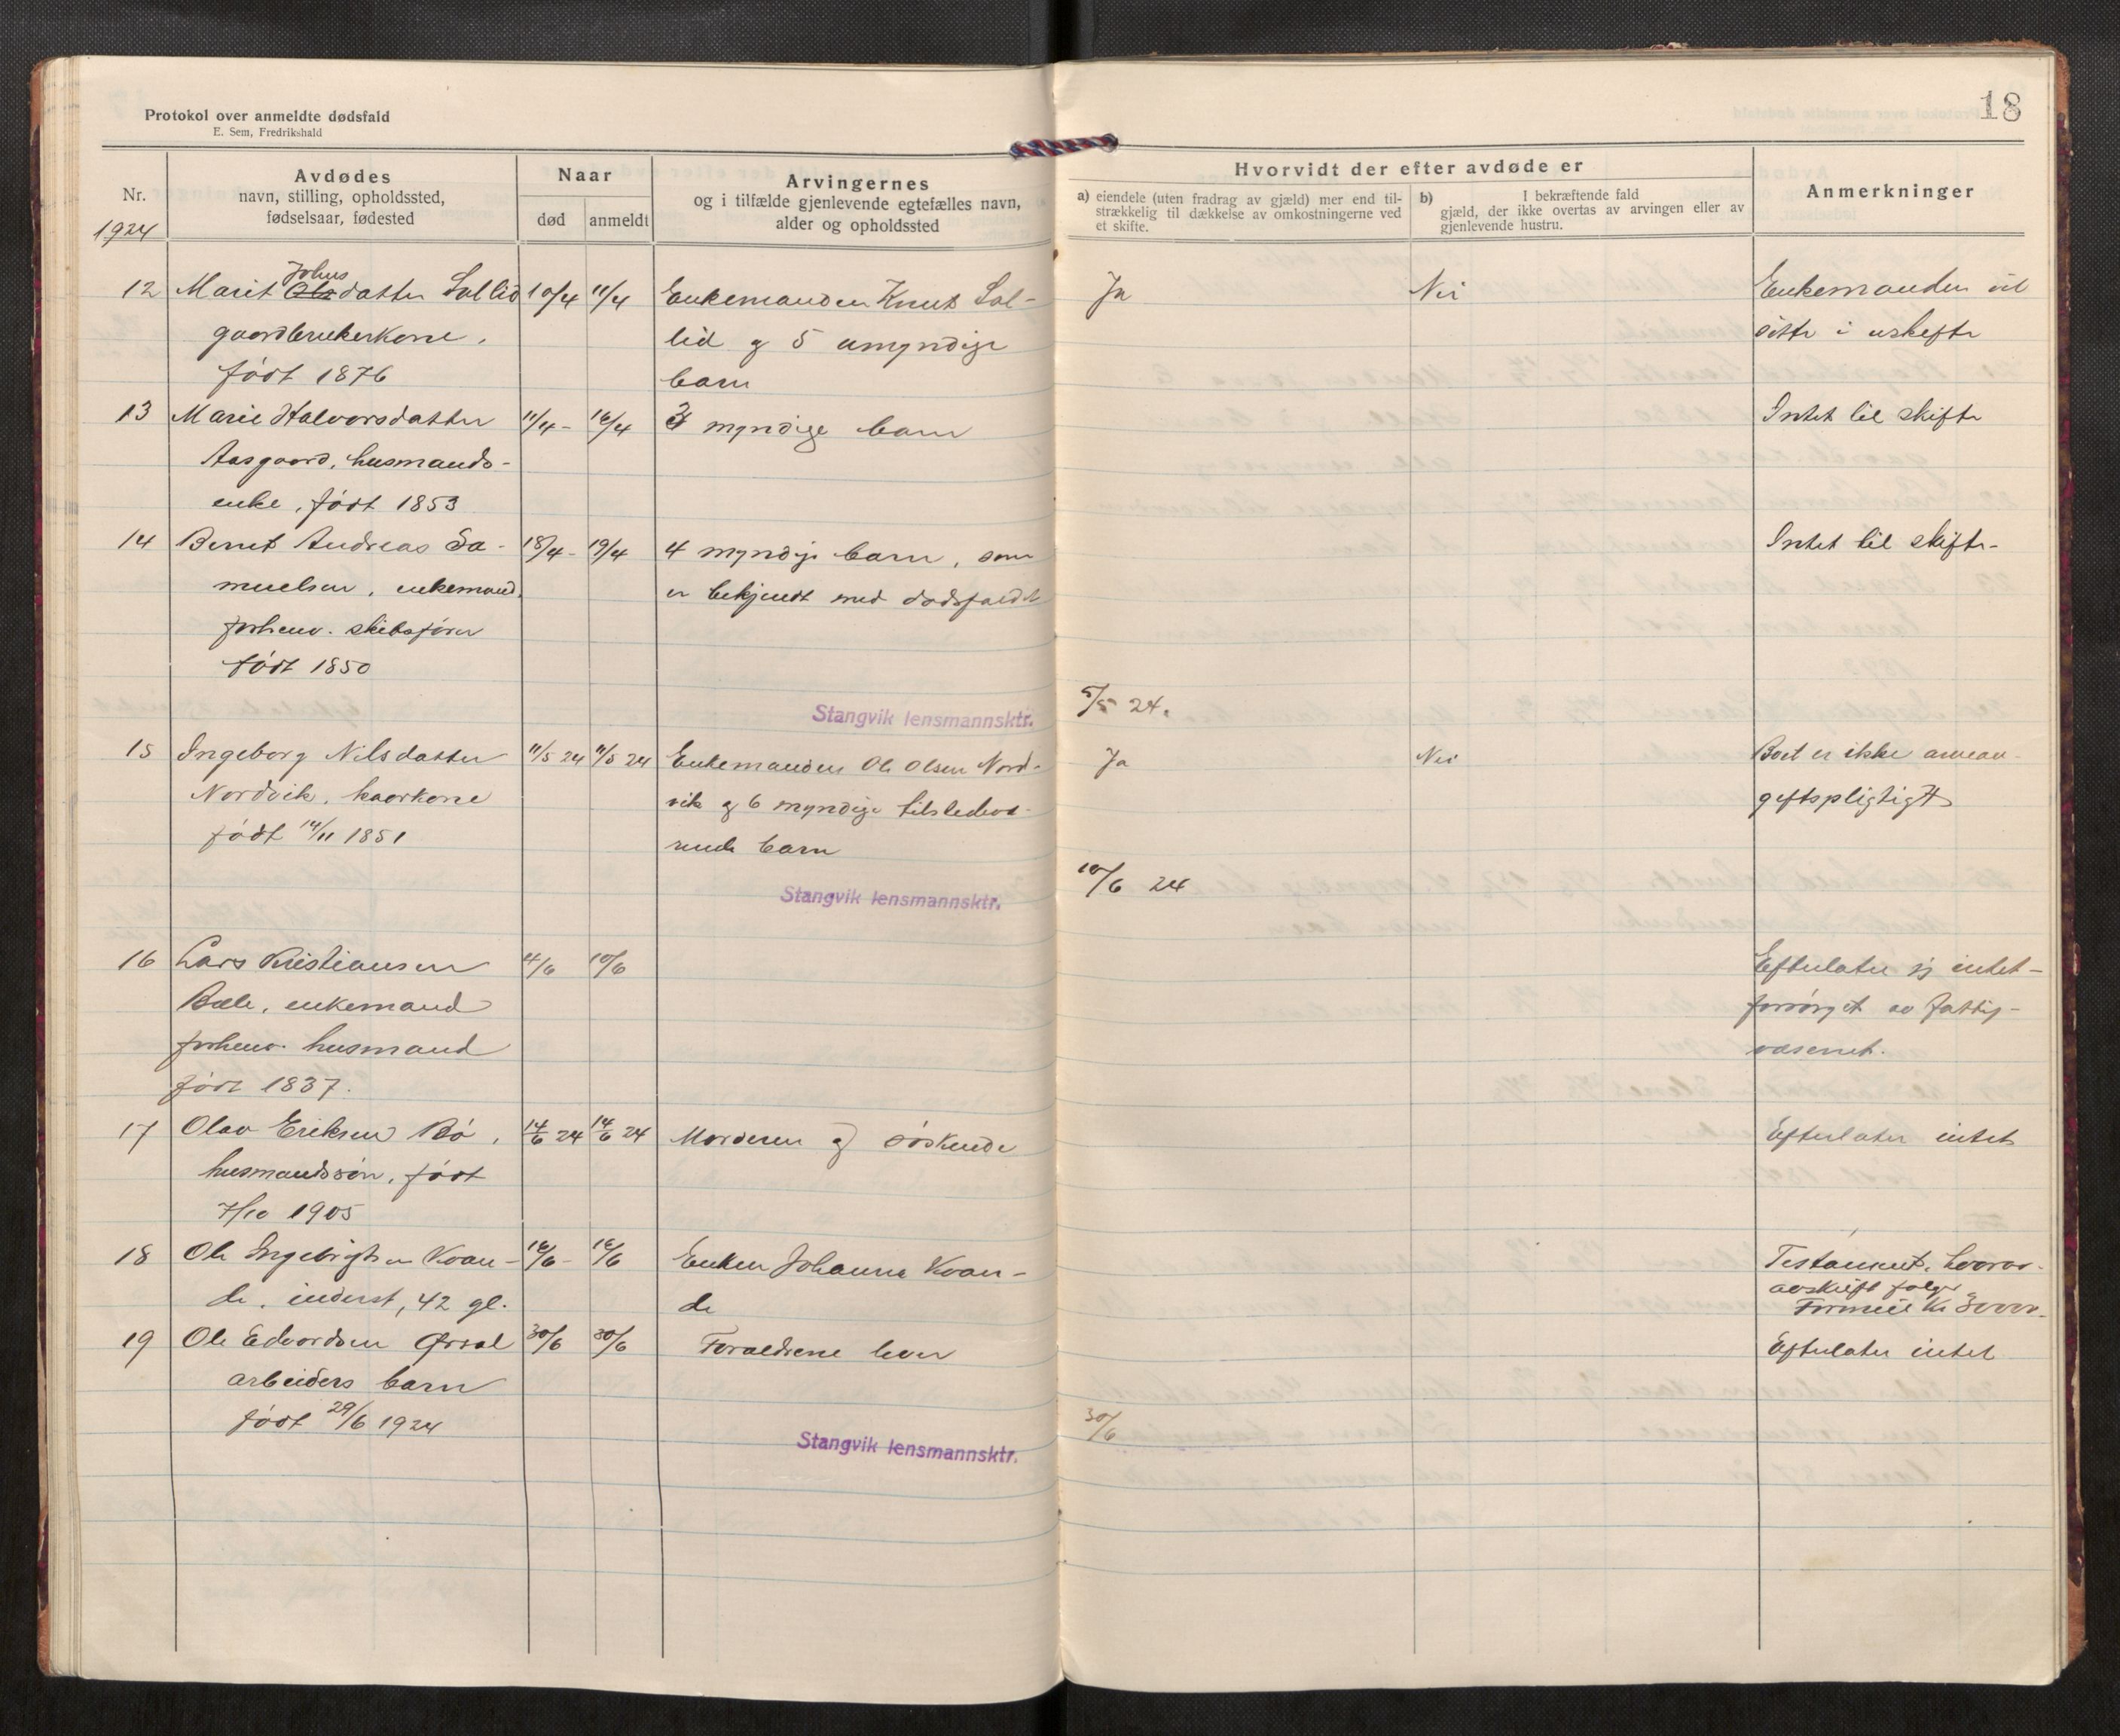 Protokol over anmeldte dødsfald
E. Sem, Fredrikshald
18
Nr.
1924
Avdødes
navn, stilling, opholdssted,
fødselsaar, fødested
Naar
død
anmeldt
Arvingernes
og i tilfælde gjenlevende egtefælles navn,
alder og opholdssted
Hvorvidt der efter avdøde er
a) eiendele (uten fradrag av gjæld) mer end til-
strækkelig til dækkelse av omkostningerne ved
et skifte.
b) I bekræftende fald
gjæld, der ikke overtas av arvingen eller av
gjenlevende hustru.
Anmerkninger
12 Marit Johns Ols datter Sollid 10/4 11/4 Enkemanden Knut Sol- Ja Nei Enkemanden vil
gaardbrukerkone, lid og 5 umyndige sitte i uskifte
født 1876 barn
13 Marie Halvorsdatter 11/4 - 16/4 3 myndige barn Intet til skifte
Aasgaard, husmands-
enke, født 1853
14 Bernt Andreas Sa- 18/4 - 19/4 4 myndige barn, som Intet til skifte-
muelsen, enkemand, er bekjendt med dødsfaldet
forhenv. skibsfører
født 1850
Stangvik lensmannsktr. 5/5 24.
15 Ingeborg Nilsdatter 11/5 24 11/5 24 Enkemanden Ole Olsen Nord- Ja Nei Boet er ikke arveav-
Nordvik, kaarkone vik og 6 myndige tilstedevæ- giftspligtigt
født 14/11 1851 rende barn
Stangvik lensmannsktr. 10/6 24
16 Lars Kristiansen 4/6 10/6 Efterlater sig intet-
Bæle, enkemand forsørget av fattig-
forhenv. husmand væsenet.
født 1837.
17 Olav Eriksen Bø, 14/6 24 14/6 24 Morderen og søskende Efterlater intet
husmandssøn, født
7/10 1905
18 Ole Ingebrigtsen Kvan- 16/6 - 16/6 Enken Johanna Kvan- Testament, hvorav
de, inderst, 42 gl. de avskrift følger
Formue Kr 3000.-
19 Ole Edvardsen 30/6 30/6 Forældrene lever Efterlater intet
arbeiders barn
født 29/6 1924
Stangvik lensmannsktr. 30/6